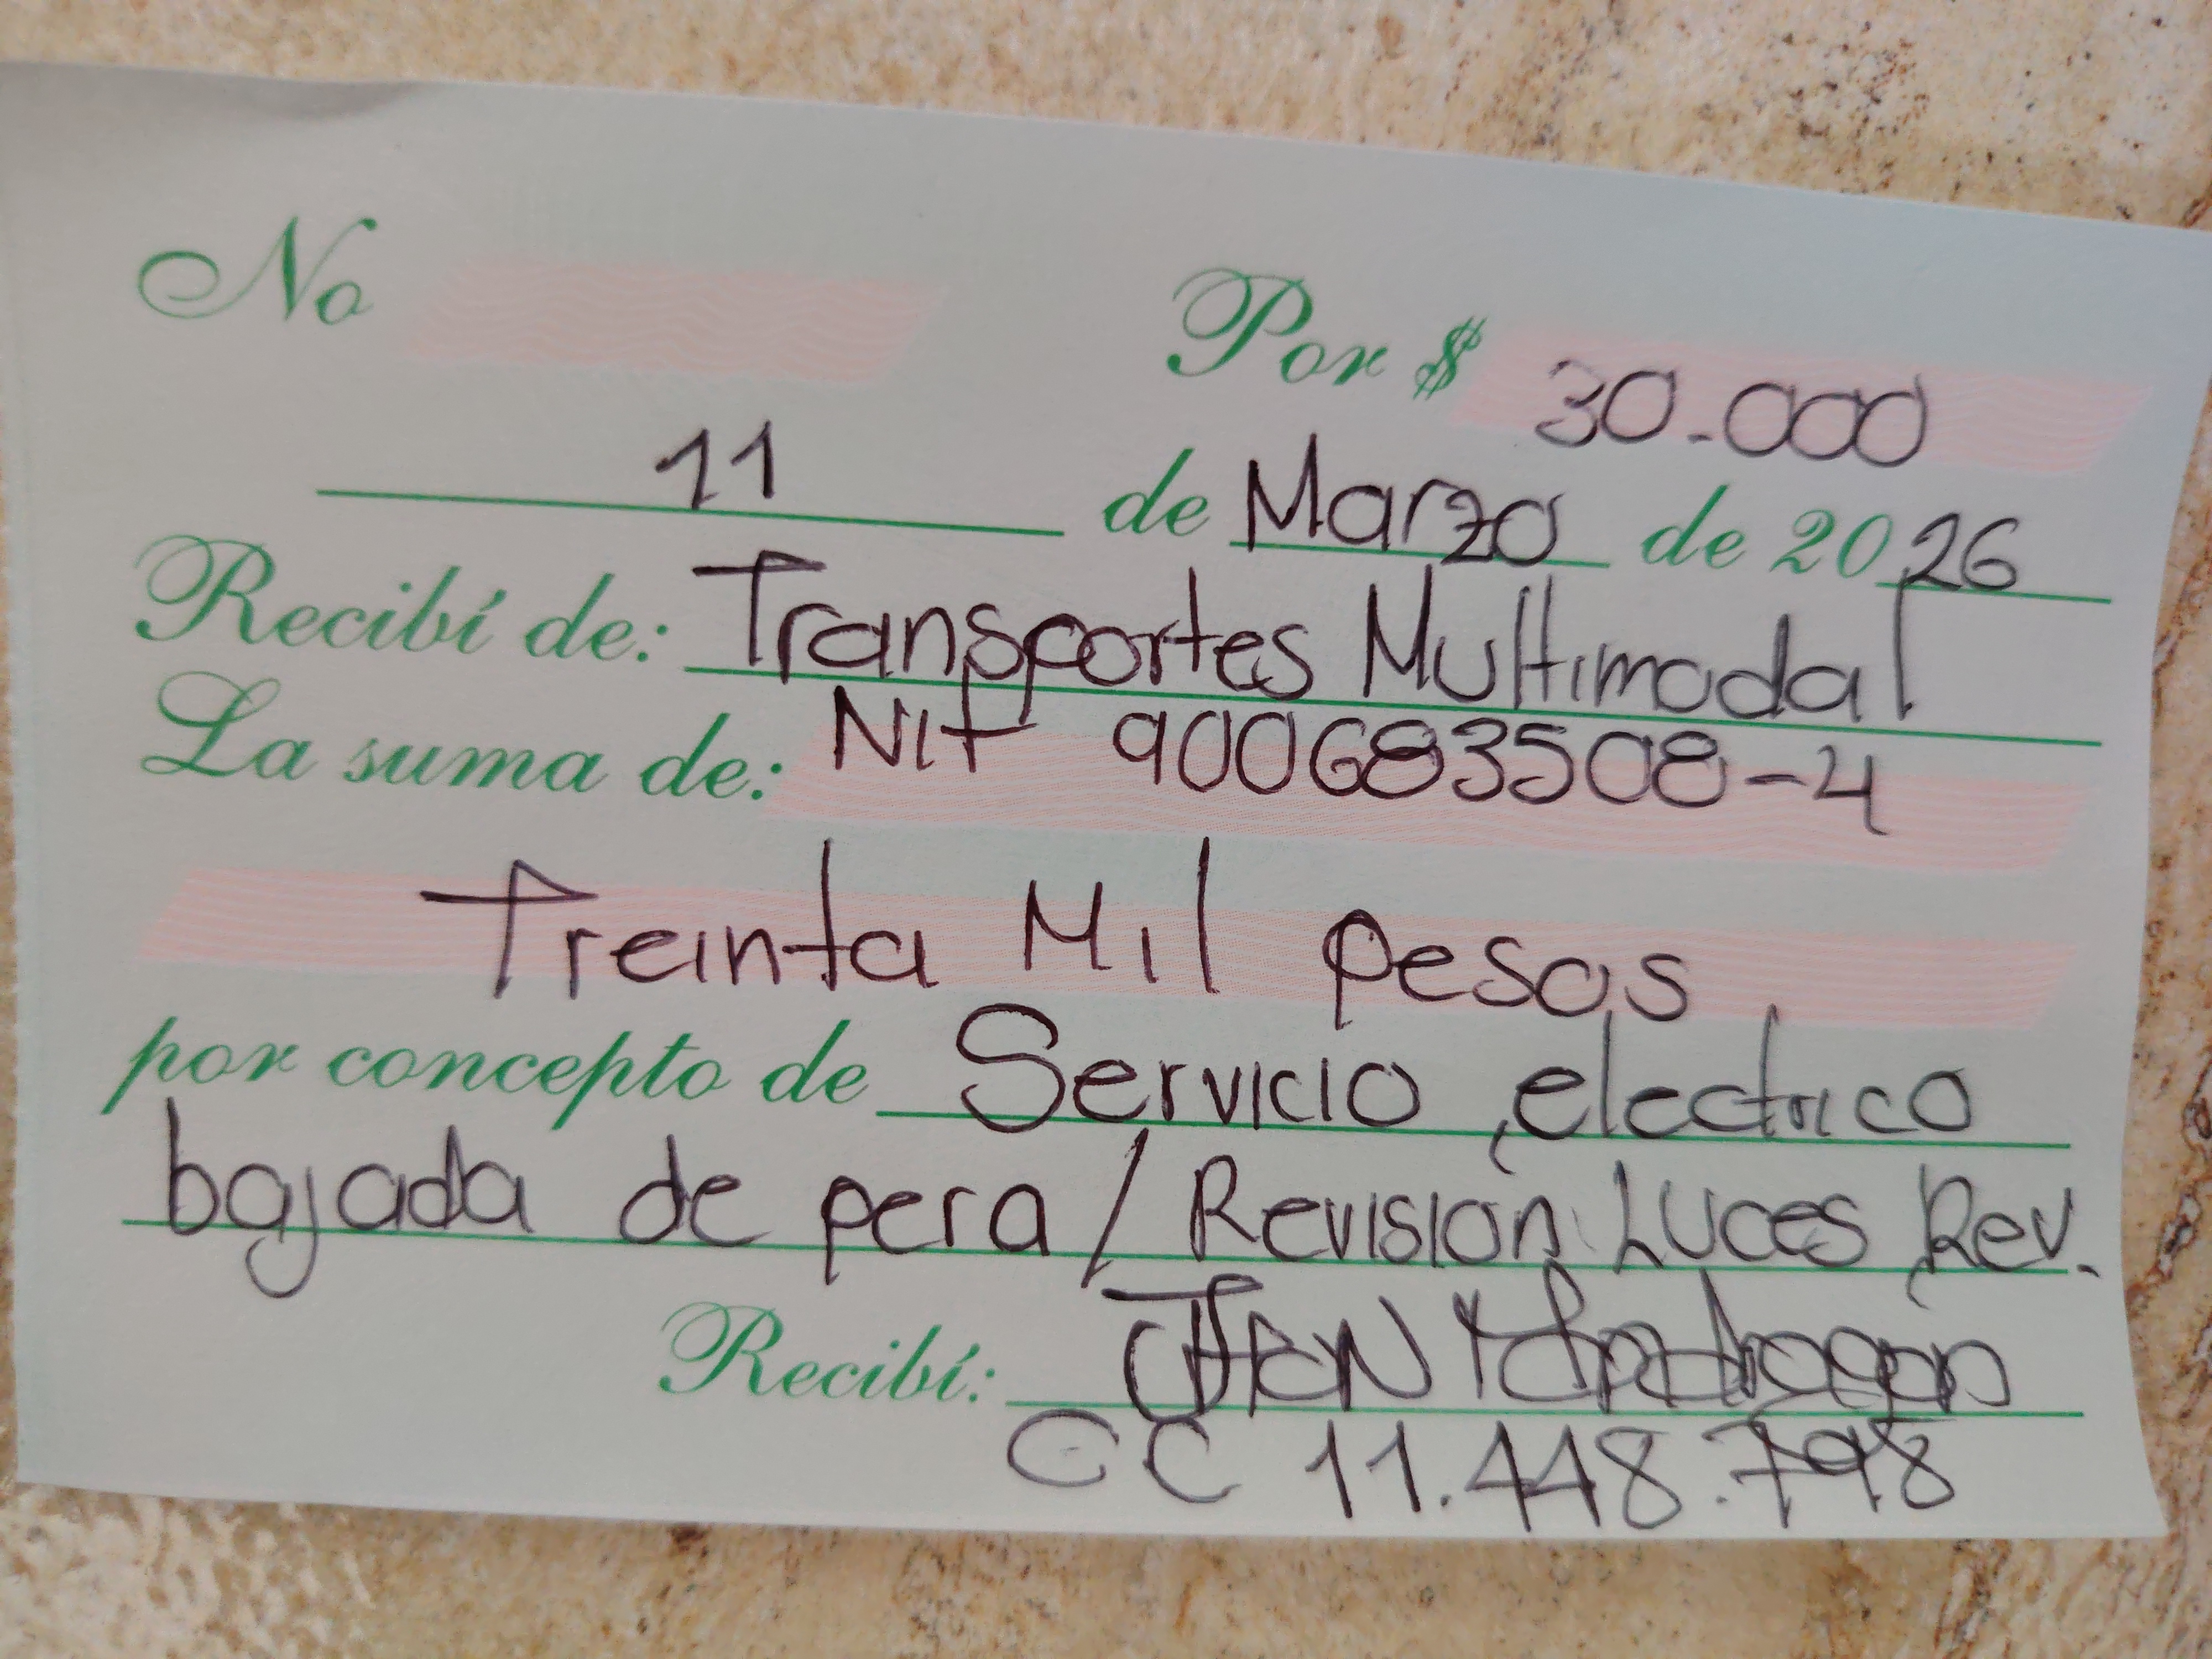 No
Por $ 30.000
11 de Marzo de 2026
Recibí de: Transportes Multimodal
La suma de: Nit 900683508-4
Treinta Mil pesos
por concepto de Servicio electrico
bajada de pera / Revisión Luces Rev.
Recibí: Jhon Mondragon
CC 11.448.798